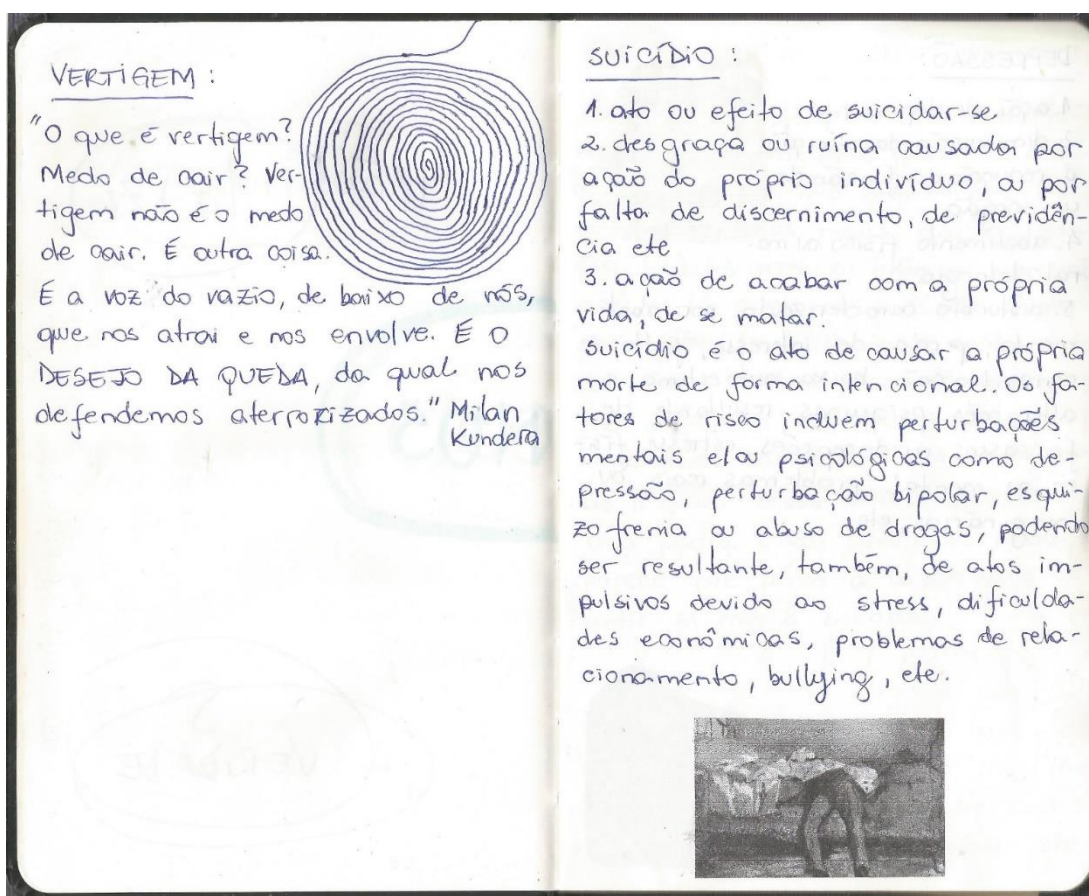 VERTIGEM :
"O que é vertigem?
Medo de cair? Ver-
tigem não é o medo
de cair. É outra coisa.
É a voz do vazio, de baixo de nós,
que nos atrai e nos envolve. É O
DESEJO DA QUEDA, da qual nos
defendemos aterrorizados." Milan
Kundera
SUICÍDIO :
1. ato ou efeito de suicidar-se
2. desgraça ou ruína causada por
ação do próprio indivíduo, ou por
falta de discernimento, de previdên-
cia etc
3. ação de acabar com a própria
vida, de se matar.
Suicídio é o ato de causar a própria
morte de forma intencional. Os fa-
tores de risco incluem perturbações
mentais e/ou psicológicas como de-
pressão, perturbação bipolar, esqui-
zofrenia ou abuso de drogas, podendo
ser resultante, também, de atos im-
pulsivos devido ao stress, dificulda-
des econômicas, problemas de rela-
cionamento, bullying, etc.